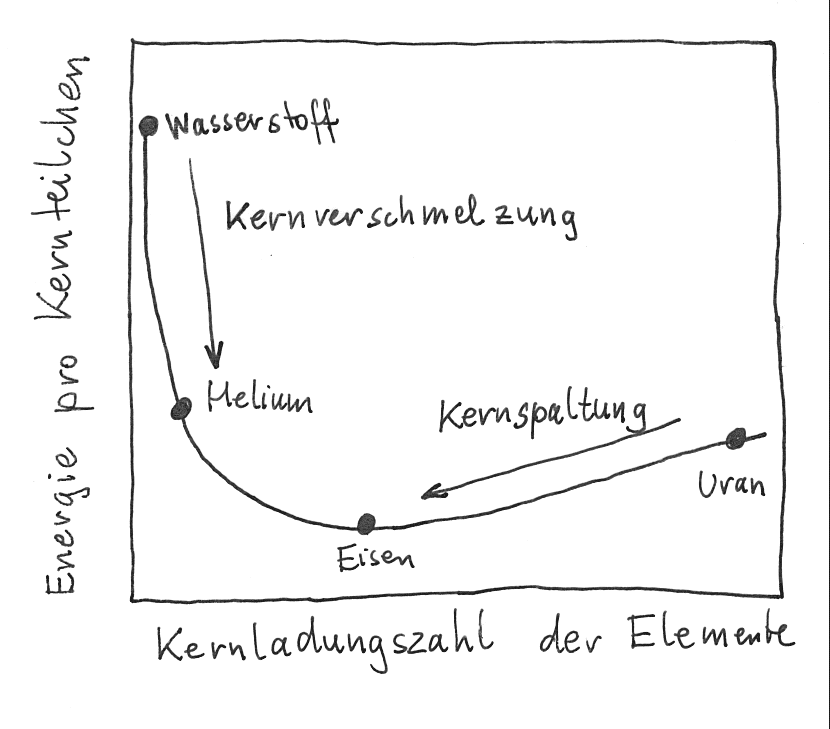 Energie pro Kernteilchen
Wasserstoff
Kernverschmelzung
Helium
Kernspaltung
Uran
Eisen
Kernladungszahl der Elemente